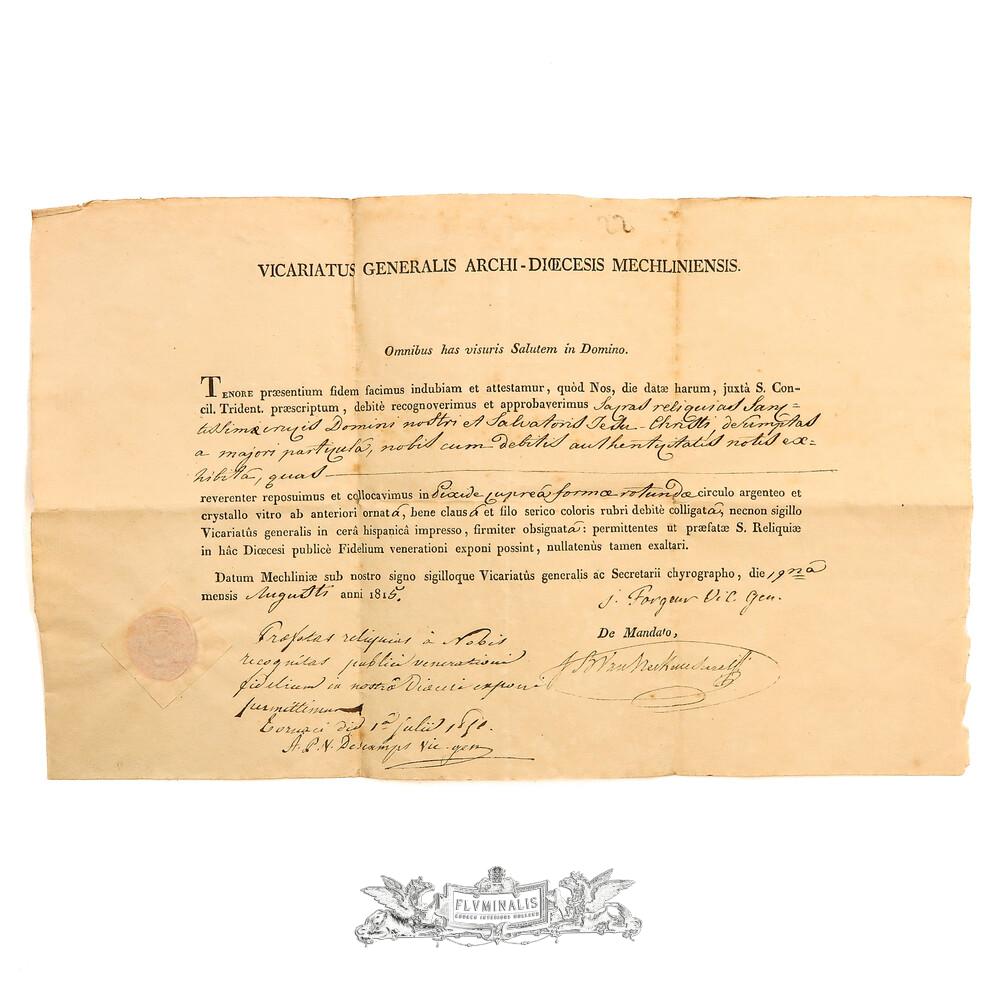 22
VICARIATUS GENERALIS ARCHI-DIŒCESIS MECHLINIENSIS.
Omnibus has visuris Salutem in Domino.
TENORE præsentium fidem facimus indubiam et attestamur, quòd Nos, die datæ harum, juxtà S. Con-
cil. Trident. præscriptum, debitè recognoverimus et approbaverimus Sacras reliquias Sanc-
tissimæ crucis Domini nostri et Salvatoris Jesu-Christi, desumptas
a majori particulâ, nobis cum debitis authenticitatis notis ex-
hibitâ, quas
reverenter reposuimus et collocavimus in pixide cupreâ formæ rotundæ circulo argenteo et
crystallo vitro ab anteriori ornatâ, bene clausâ et filo serico coloris rubri debitè colligatâ, necnon sigillo
Vicariatûs generalis in cerâ hispanicâ impresso, firmiter obsignatâ: permittentes ut præfatæ S. Reliquiæ
in hâc Diœcesi publicè Fidelium venerationi exponi possint, nullatenùs tamen exaltari.
Datum Mechliniæ sub nostro signo sigilloque Vicariatûs generalis ac Secretarii chyrographo, die 19nâ
mensis Augusti anni 1815.
J. Forgeur Vic. Gen.
De Mandato,
Præfatas reliquias à Nobis
recognitas publicæ venerationi
fidelium in nostrâ Diœcesi exponi
permittimus
Tornaci die 1â julii 1850.
A. P. V. Descamps Vic. gen.
FLVMINALIS
CHURCH INTERIORS HOLLAND